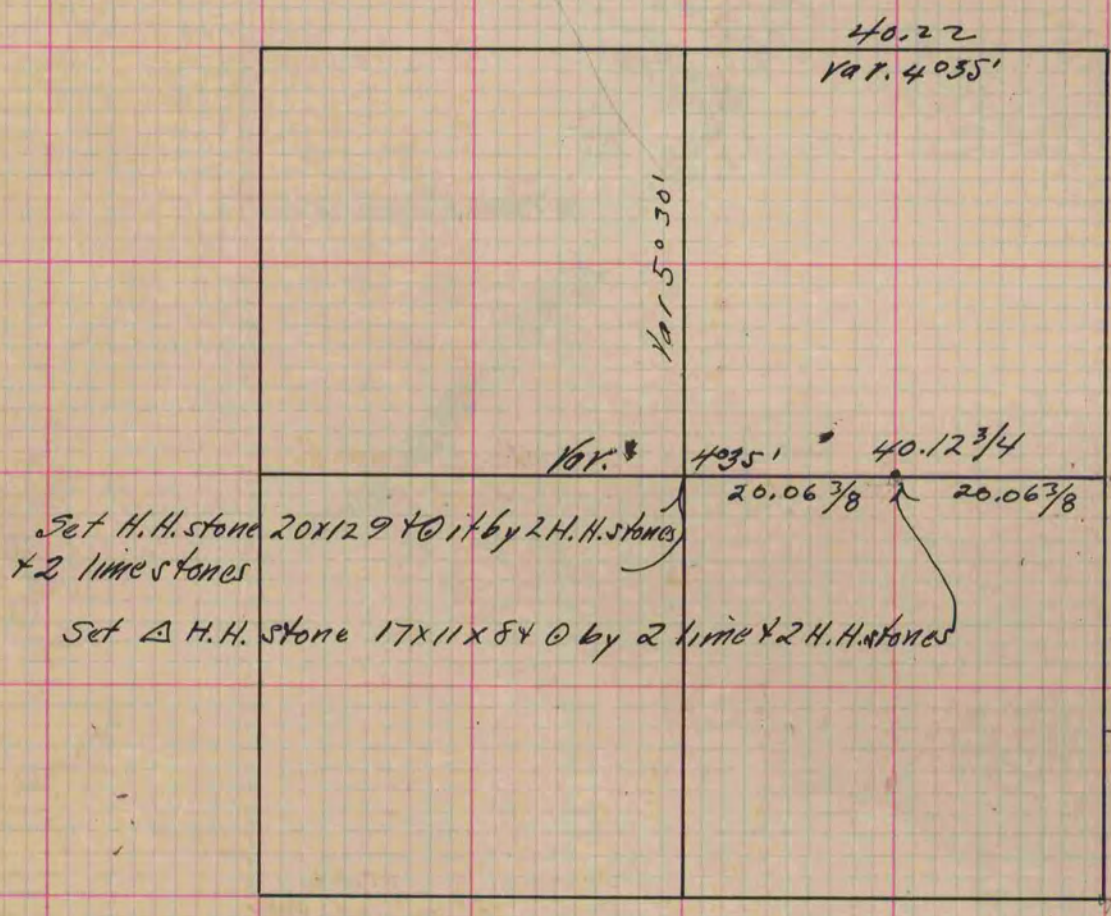 40.22
Var. 4°35'
Var 5° 30'
Var. 4°35' 40.12 3/4
20.06 3/8 20.06 3/8
Set H.H. stone 20x129 + ⊙ it by 2 H.H. stones
+ 2 limestones
Set △ H.H. stone 17x11x8 + ⊙ by 2 lime + 2 H.H. stones